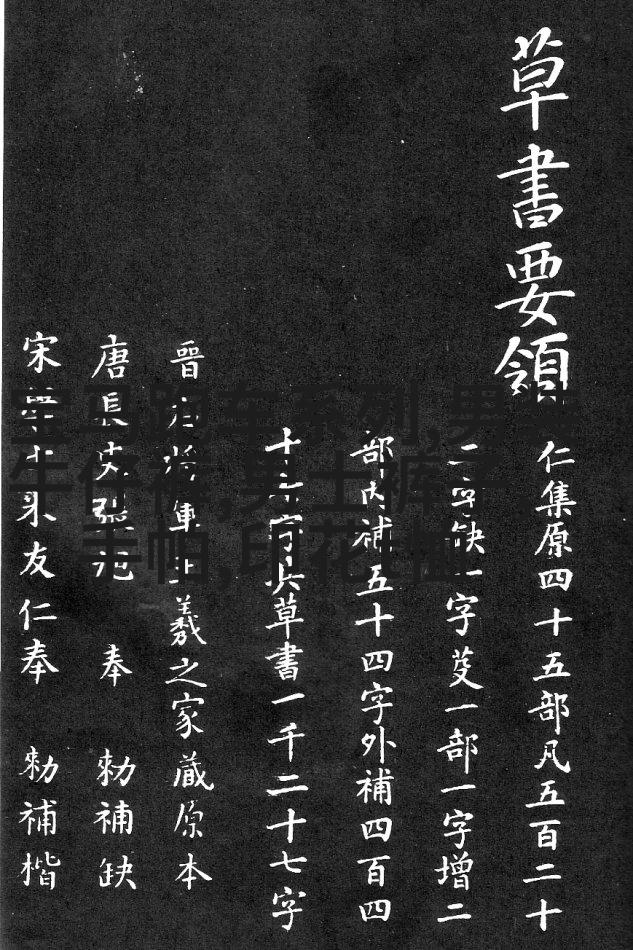 草書要領
仁集原四十五部凡五百二十
二字缺一字芟一部一字增二
部内補五十四字外補四百四
十七字共草書一千二十七字
晉右将軍王羲之家藏原本
唐長史張旭 奉 勑補缺
宋學士米友仁奉 勑補楷
宝马跑车系列,男装
牛仔裤,男士裤子,
手帕,印花t恤